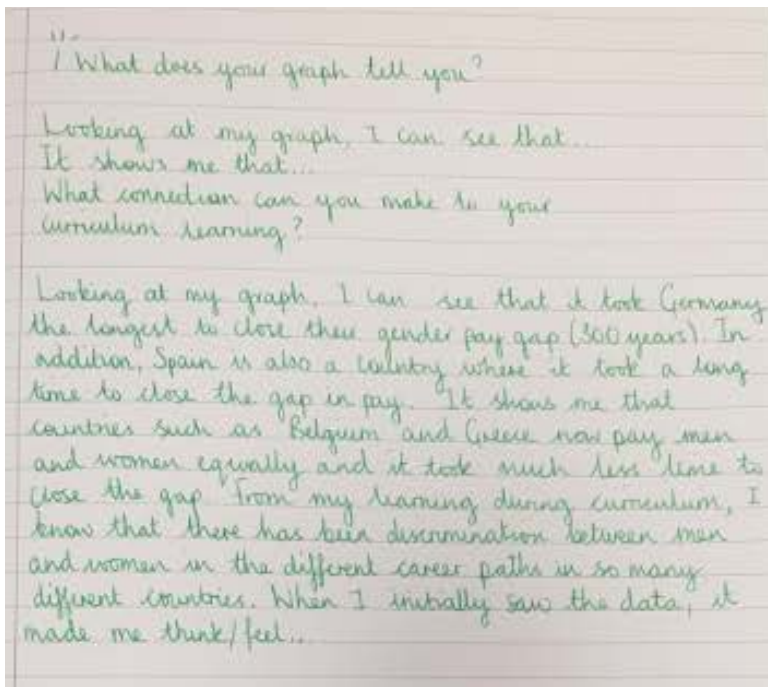 / What does your graph tell you?
Looking at my graph, I can see that...
It shows me that...
What connection can you make to your
curriculum learning?
Looking at my graph, I can see that it took Germany
the longest to close their gender pay gap (300 years). In
addition, Spain is also a country where it took a long
time to close the gap in pay. It shows me that
countries such as Belgium and Greece now pay men
and women equally and it took much less time to
close the gap. From my learning during curriculum, I
know that there has been discrimination between men
and women in the different career paths in so many
different countries. When I initially saw the data, it
made me think/feel...